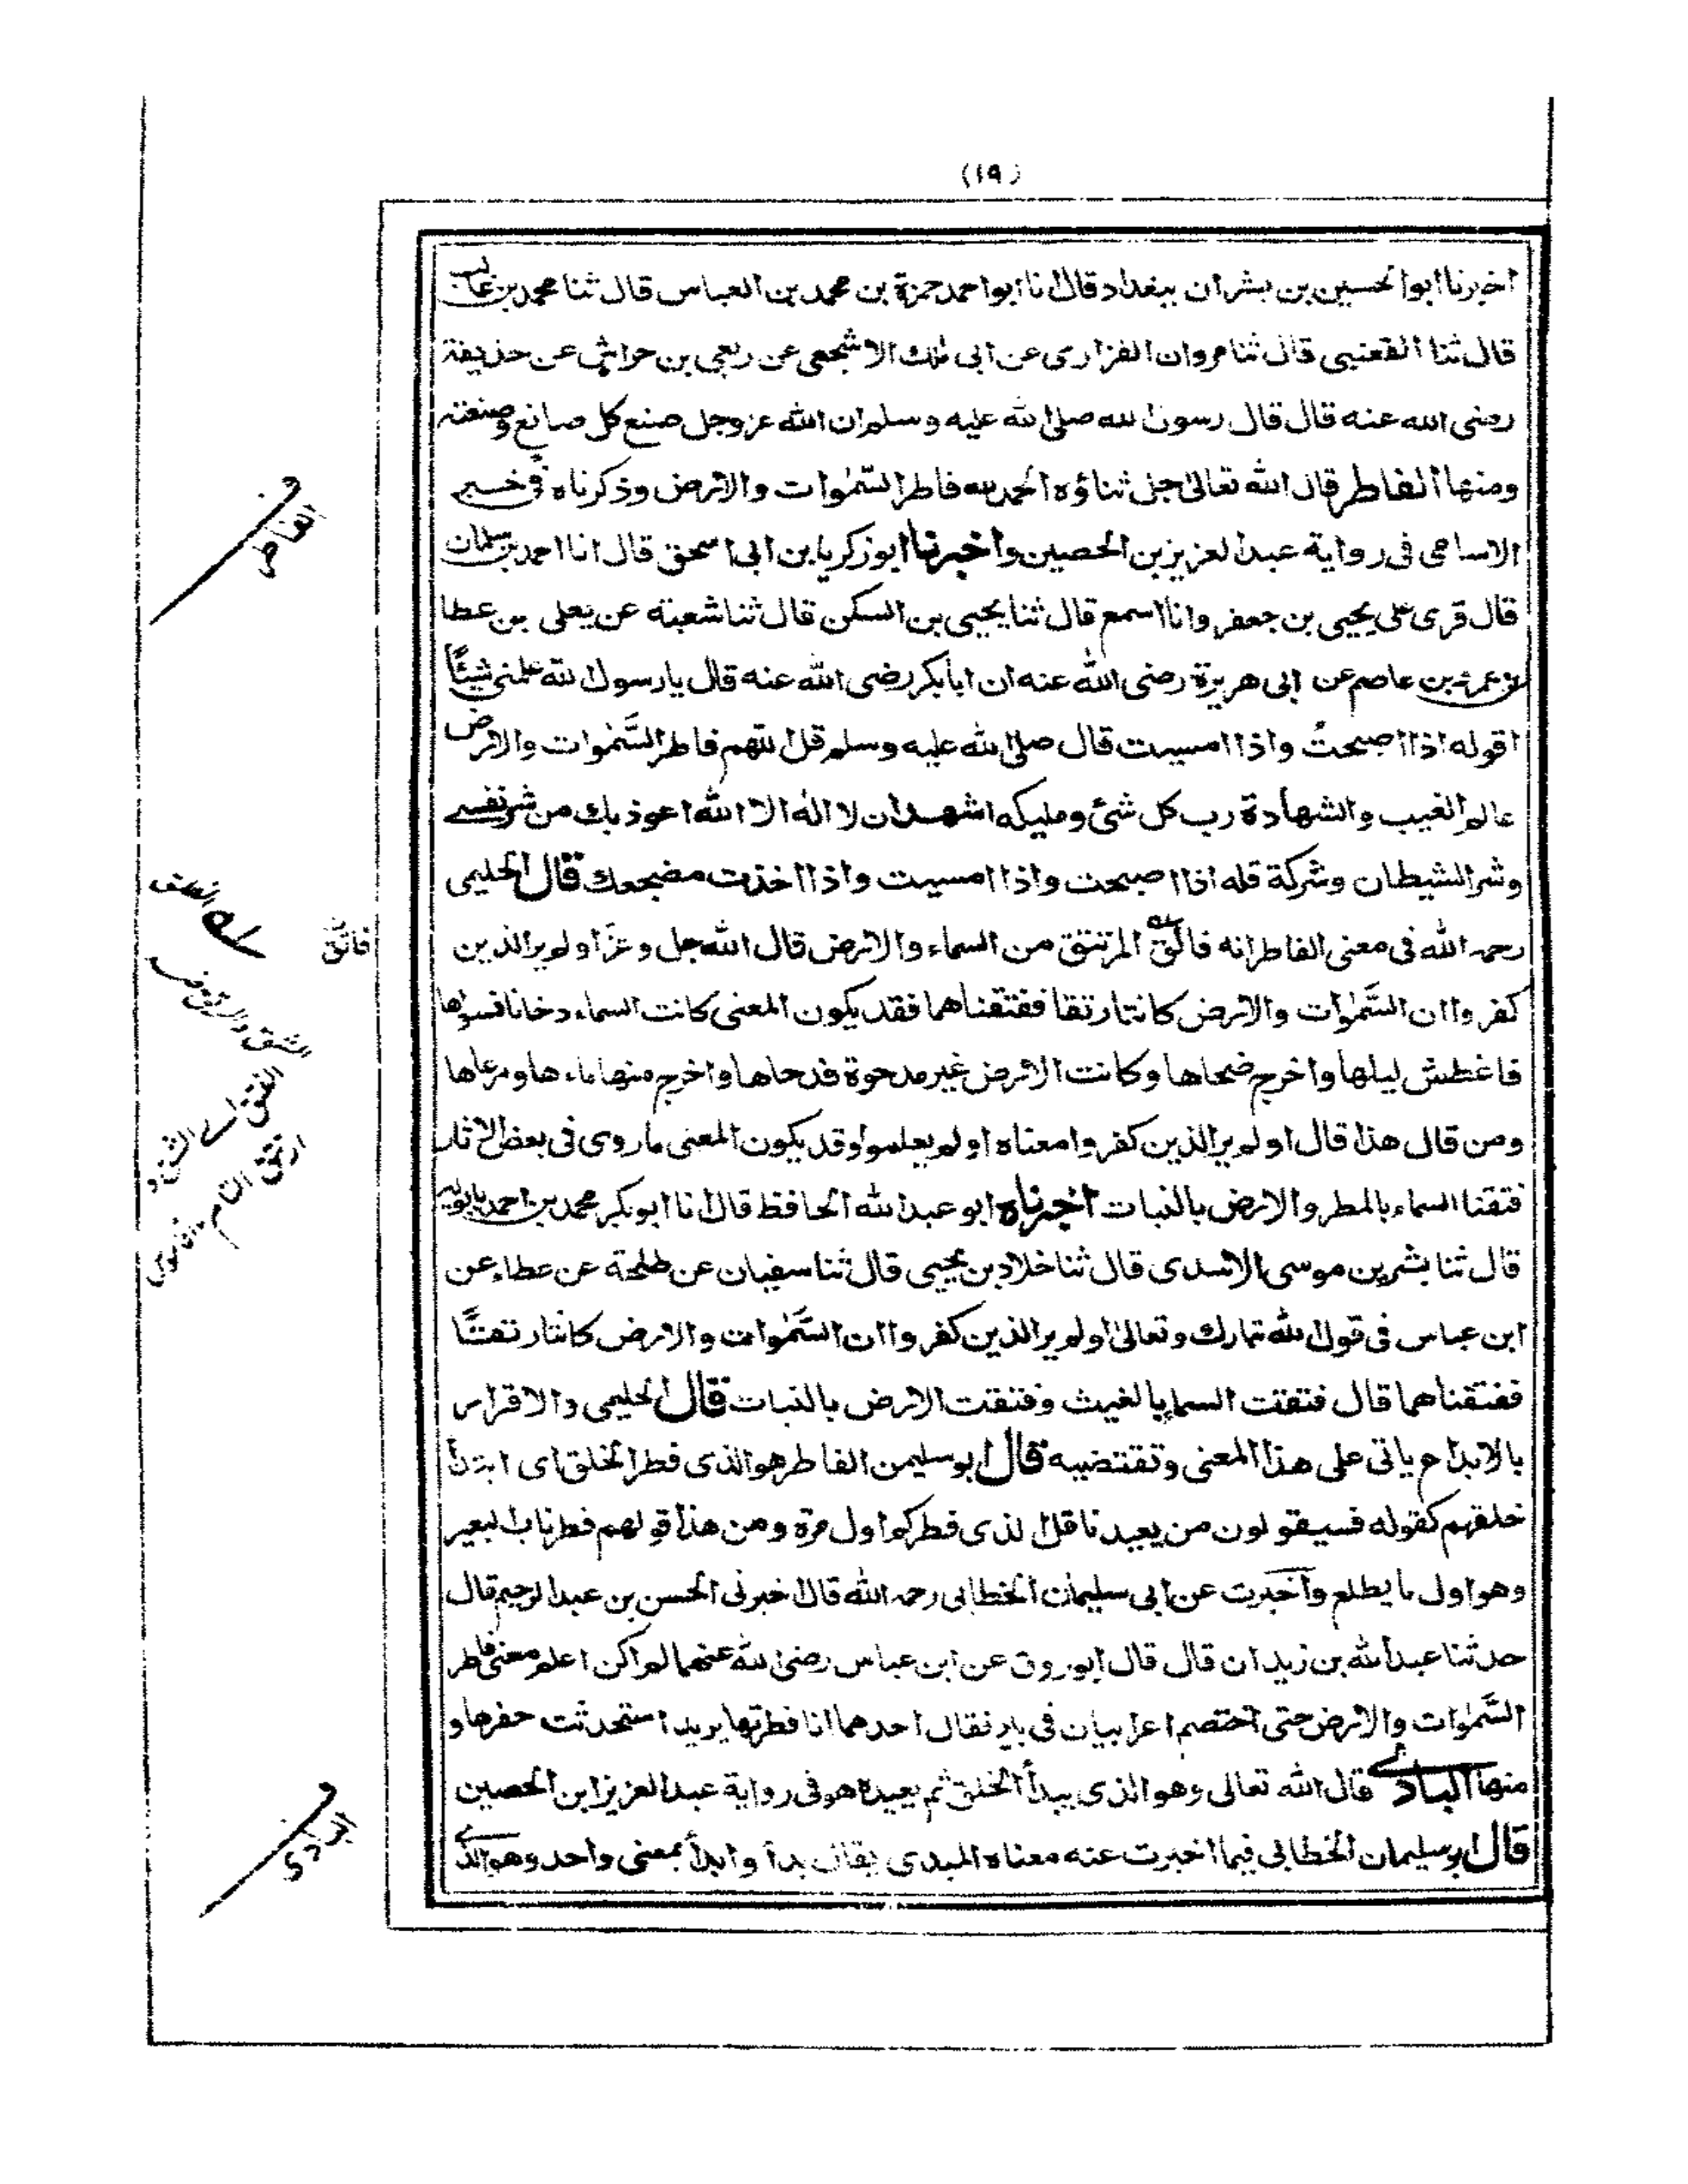 (١٩)
اخبرنا ابوالحسين بن بشران ببغداد قال انا ابو احمد حمزة بن محمد بن العباس قال ثنا محمد بن غالب
قال ثنا القعنبى قال ثنا مروان الفزارى عن ابى ملك الاشجعى عن ربعى بن حراش عن حذيفة
رضى الله عنه قال قال رسول الله صلى الله عليه وسلم ان الله عز وجل صنع كل صانع وصنعته
ومنها الفاطر قال الله تعالى جل ثناؤه الحمد لله فاطر السمٰوات والارض وذكرناه فى خبر
الاسامى فى رواية عبد العزيز بن الحصين واخبرنا ابوزكريا بن ابى اسحق قال انا احمد بن سلمان
قال قرى على يحيى بن جعفر وانا اسمع قال ثنا يحيى بن السكن قال ثنا شعبة عن يعلى بن عطا
عن عمرو بن عاصم عن ابى هريرة رضى الله عنه ان ابا بكر رضى الله عنه قال يا رسول الله علمنى شيئًا
اقوله اذا اصبحتُ واذا امسيت قال صلى الله عليه وسلم قل اللهم فاطر السَّمٰوات والارض
عالم الغيب والشهادة رب كل شئ ومليكه اشهد ان لا اله الا الله اعوذ بك من شر نفسى
وشر الشيطان وشركة قله اذا اصبحت واذا امسيت واذا اخذت مضجعك قال الحليمى
رحمه الله فى معنى الفاطر انه فالق المرتتق من السماء والارض قال الله جل وعزّ اولم ير الذين
كفروا ان السَّمٰوات والارض كانتا رتقا ففتقناهما فقد يكون المعنى كانت السماء دخانا فسواها
فاغطش ليلها واخرج ضحاها وكانت الارض غير مدحوة فدحاها واخرج منها ماءها ومرعاها
ومن قال هذا قال اولم ير الذين كفروا معناه اولم يعلموا وقد يكون المعنى ماروى فى بعض الاثار
فتقنا السماء بالمطر والارض بالنبات اخبرناه ابو عبد الله الحافظ قال انا ابوبكر محمد بن احمد بن بالويه
قال ثنا بشر بن موسى الاسدى قال ثنا خلاد بن يحيى قال ثنا سفيان عن طلحة عن عطاء عن
ابن عباس فى قول الله تبارك وتعالى اولم ير الذين كفروا ان السَّمٰوات والارض كانتا رتقًا
ففتقناهما قال فتقت السماء بالغيث وفتقت الارض بالنبات قال الحليمى والاقرار
بالابداع ياتى على هذا المعنى وتقتضيه قال ابو سليمن الفاطر هو الذى فطر الخلق اى ابتدأ
خلقهم كقوله فسيقولون من يعيدنا قل الذى فطركم اول مرة ومن هذا قولهم فطر ناب البعير
وهو اول ما يطلع واخبرت عن ابى سليمان الخطابى رحمه الله قال اخبرنى الحسن بن عبد الرحيم قال
حدثنا عبد الله بن زيدان قال قال ابوروق عن ابن عباس رضى الله عنهما لم اكن اعلم معنى فاطر
السَّمٰوات والارض حتى اختصم اعرابيان فى بير فقال احدهما انا فطرتها يريد استحدثت حفرها و
منها البادئ قال الله تعالى وهو الذى يبدأ الخلق ثم يعيده هو فى رواية عبد العزيز ابن الحصين
قال ابو سليمان الخطابى فيما اخبرت عنه معناه المبدى يقال بدأ وابدأ بمعنى واحد وهو الذى
ف
الفاطر
فاتق
الفتق اى الشق و
ف
البادى